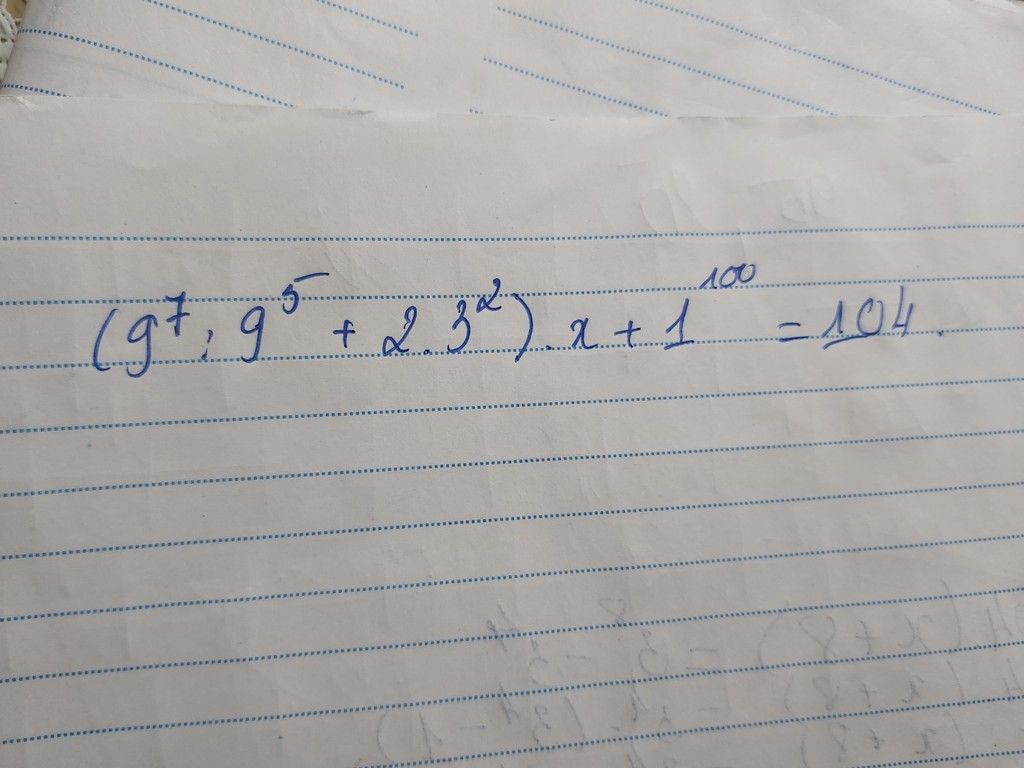 (9⁷ : 9⁵ + 2.3²). x + 1¹⁰⁰ = 104.